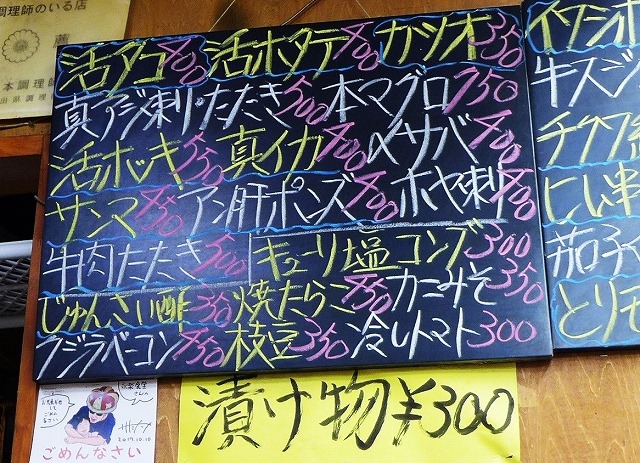 調理師のいる店
活タコ700 活ホタテ700 カツオ350
真アジ刺・たたき500 本マグロ750
活ホッキ550 真イカ700 〆サバ700
サンマ550 アン肝ポンズ700 ホヤ刺700
牛肉たたき500 キューリ塩コンブ300
じゅんさい酢350 焼たらこ350 カニみそ350
クジラベーコン750 枝豆350 冷しトマト300
牛スジ
とりモ
漬け物¥300
ごめんなさい